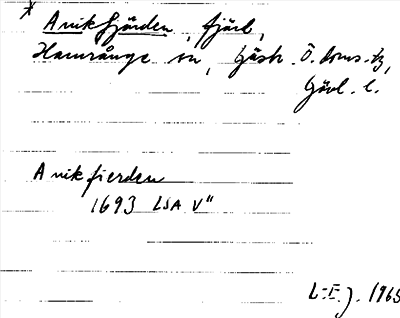 * Anikfjärden, fjärd,
Hamrånge sn, Gästr. Ö. doms-tg,
Gävl. l.
Anikfierden
1693 LSA V"
L-E. J. 1965